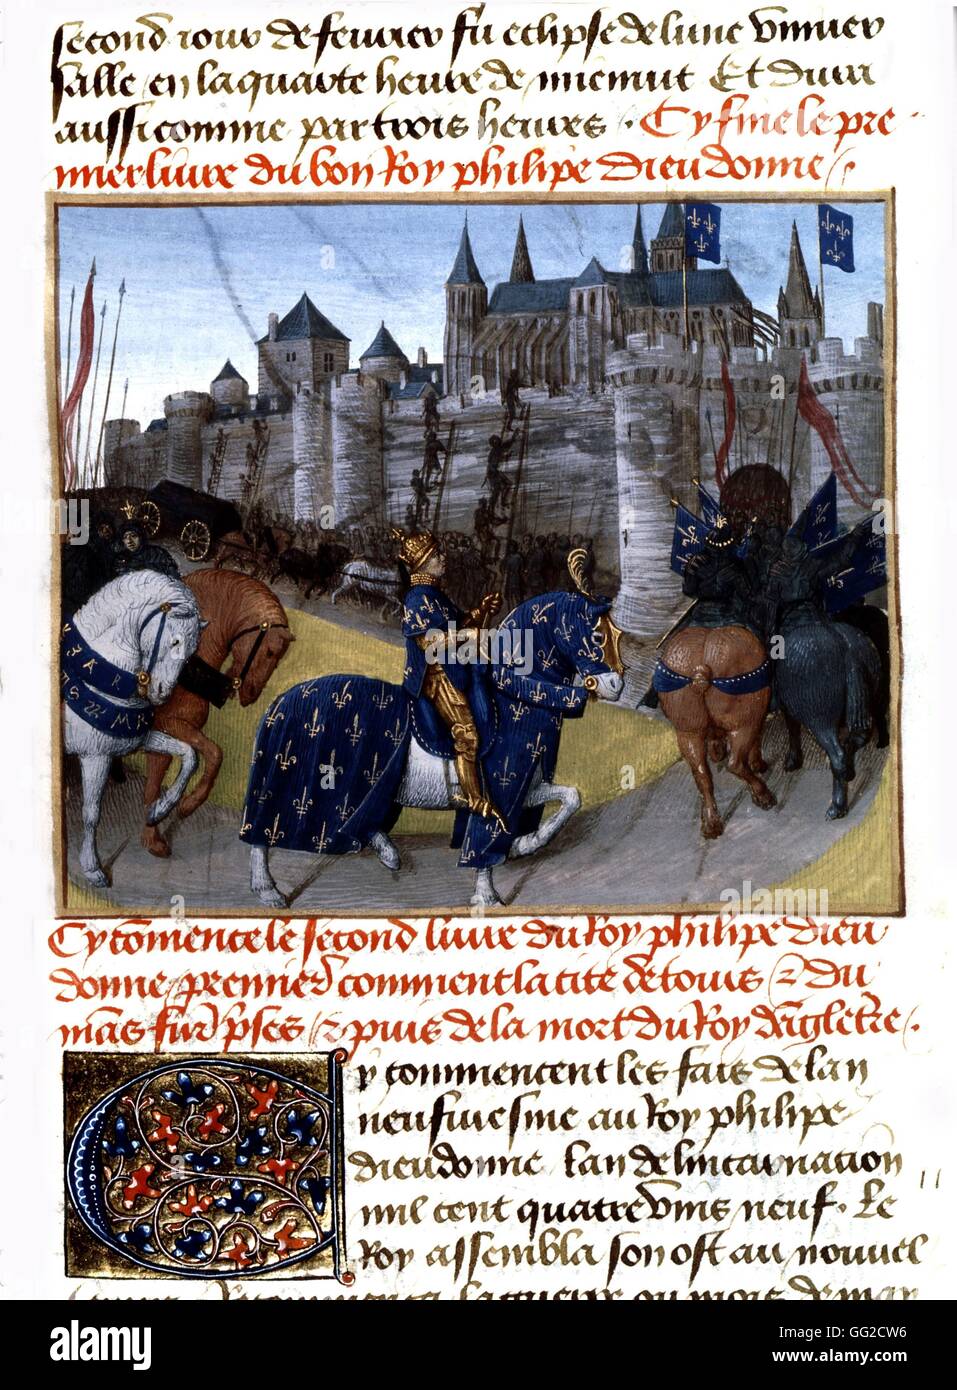 second iour de feurier fu eclipse de lune vniuer
salle en la quarte heure de mienuit Et dura
aussi comme par trois heures . Cy fine le pre
mier liure du bon Roy phelipe dieudonne /
Cy comence le second liure du Roy phelipe dieu
donne premier comment la cite de tours & du
mans fur pses / & puis de la mort du Roy dãgletre .
Cy commencent les fais de lan
neufuiesme au Roy phelipe
dieudonne lan de lincarnacion
mil cent quatre vins neuf . Le
Roy assembla son ost au nouuel
la guerre ou mois de may
alamy stock photo
GG2CW6
www.alamy.com